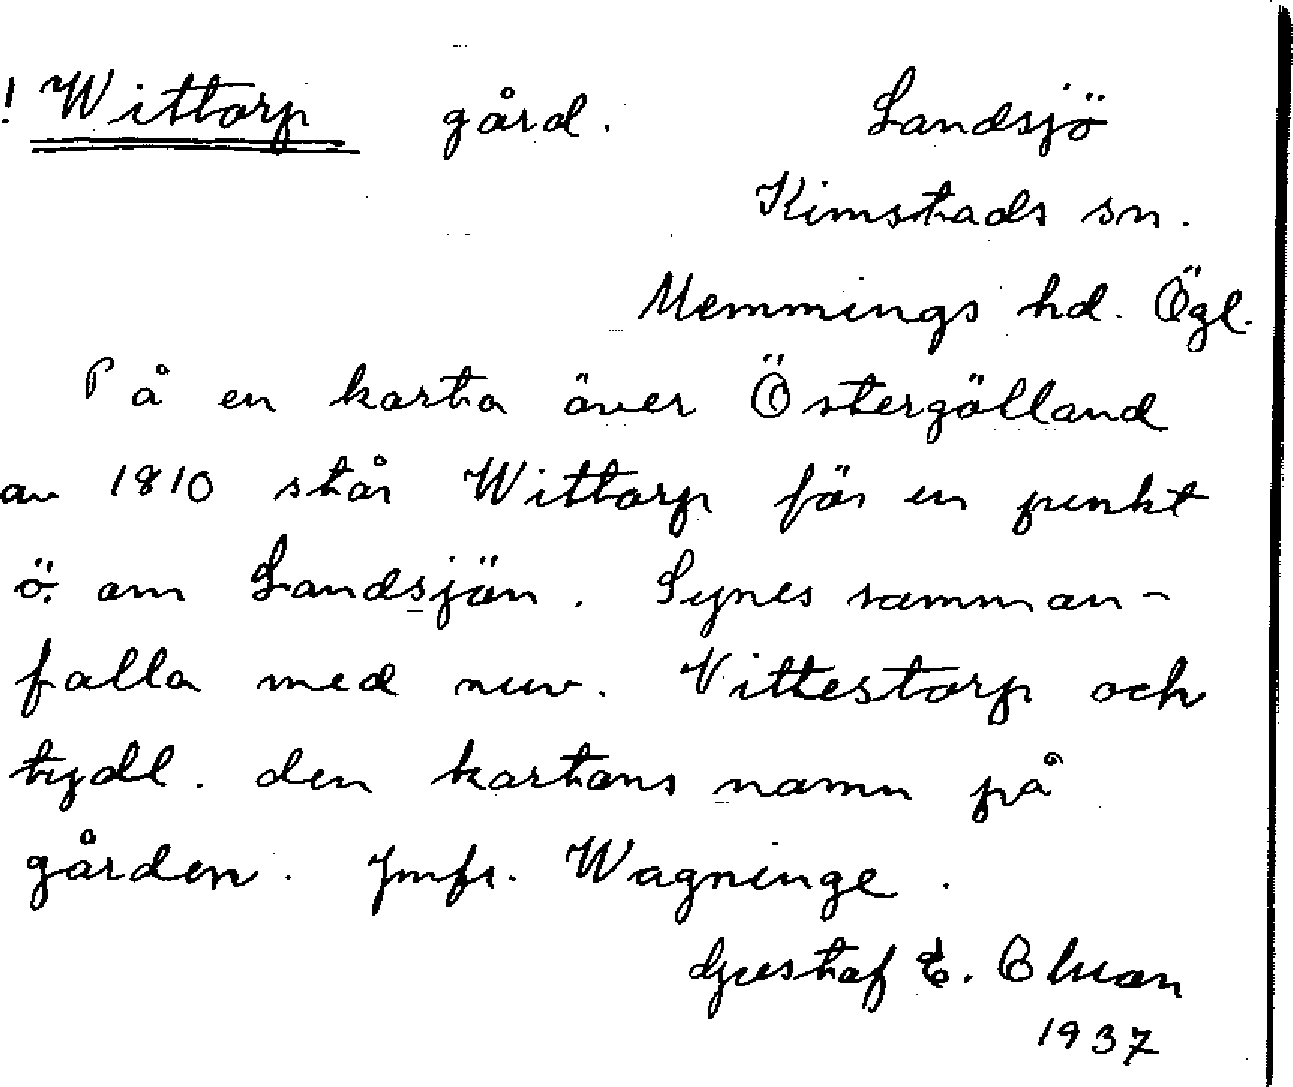 ! Wittorp gård. Landsjö
Kimstads sn.
Memmings hd. Ögl.
På en karta över Östergötland
av 1810 står Wittorp för en punkt
ö. om Landsjön. Synes samman-
falla med nuv. Vittestorp och
tydl. den kartans namn på
gården. Jmfr. Wagninge.
Gustaf E.
1937